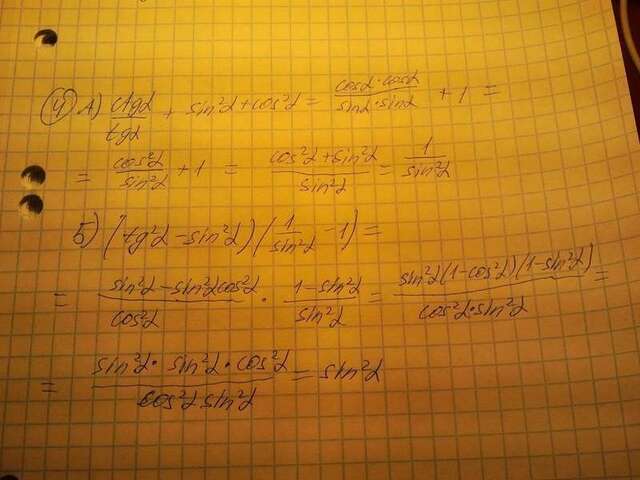 ④ А) ctgα/tgα + sin²α + cos²α = cosα·cosα/sinα·sinα + 1 =
= cos²α/sin²α + 1 = cos²α + sin²α/sin²α = 1/sin²α
Б) (tg²α - sin²α)(1/sin²α - 1) =
= sin²α - sin²αcos²α/cos²α · 1 - sin²α/sin²α = sin²α(1 - cos²α)(1 - sin²α)/cos²α·sin²α =
= sin²α · sin²α · cos²α/cos²α sin²α = sin²α